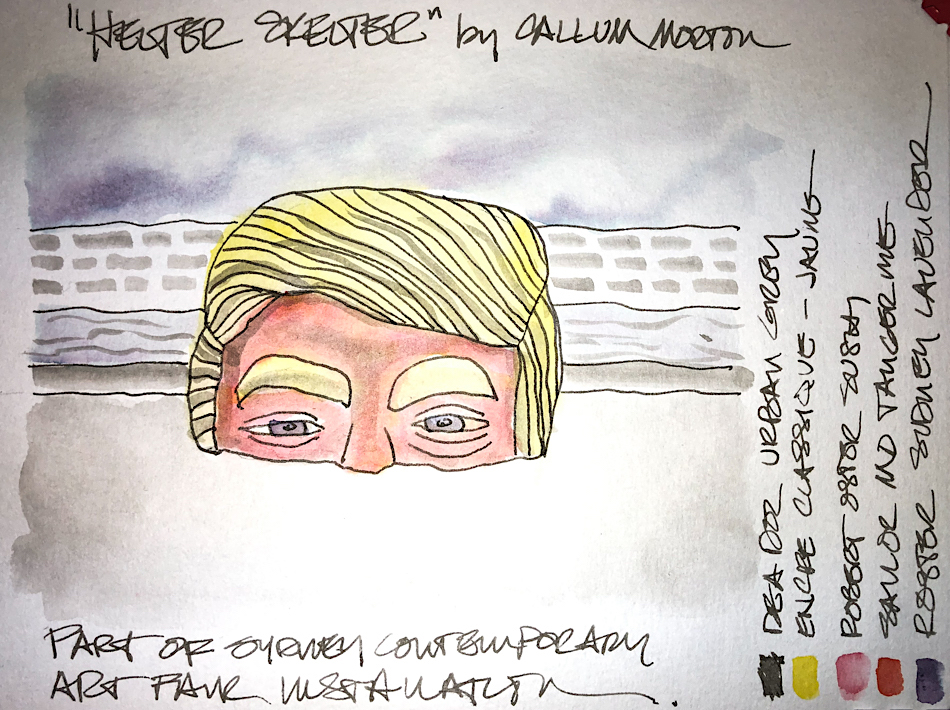 "HELTER SKELTER" by CALLUM MORTON
DE ATRAMENTIS URBAN GREY
ENCRE CLASSIQUE - JAUNE
ROBERT OSTER
SAILOR TANGERINE
SYDNEY LAVENDER
PART OF SYDNEY CONTEMPORARY
ART FAIR INSTALLATION.